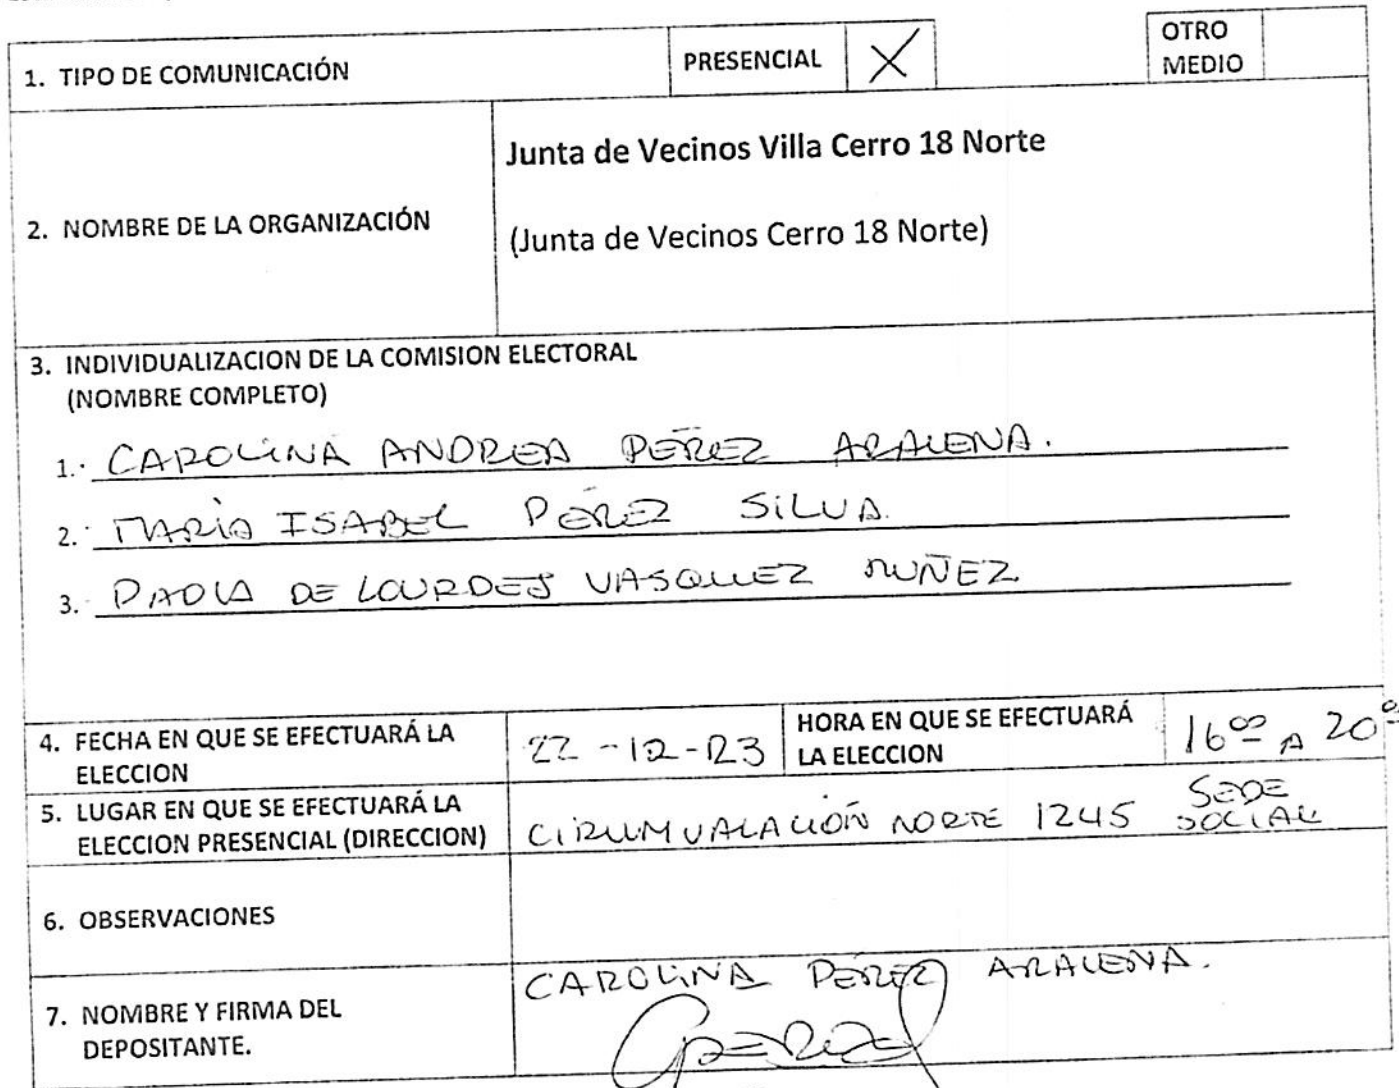 1. TIPO DE COMUNICACIÓN PRESENCIAL X OTRO MEDIO
2. NOMBRE DE LA ORGANIZACIÓN
Junta de Vecinos Villa Cerro 18 Norte
(Junta de Vecinos Cerro 18 Norte)
3. INDIVIDUALIZACION DE LA COMISION ELECTORAL
(NOMBRE COMPLETO)
1. CAROLINA ANDREA PÉREZ ARALENA.
2. MARÍA ISABEL PÉREZ SILVA.
3. PAOLA DE LOURDES VASQUEZ NUÑEZ
4. FECHA EN QUE SE EFECTUARÁ LA
ELECCION
22-12-23
HORA EN QUE SE EFECTUARÁ
LA ELECCION
16 00 A 20
5. LUGAR EN QUE SE EFECTUARÁ LA
ELECCION PRESENCIAL (DIRECCION)
CIRCUMVALACIÓN NORTE 1245 SEDE
SOCIAL
6. OBSERVACIONES
7. NOMBRE Y FIRMA DEL
DEPOSITANTE.
CAROLINA PÉREZ ARALENA.